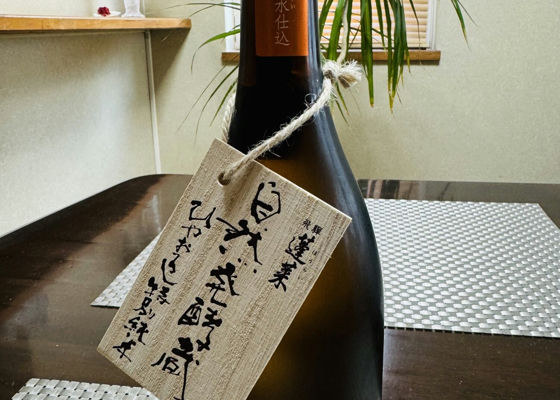 水仕込
飛騨
蓬莱
ほうらい
自然発酵蔵
ひやおろし特別純米